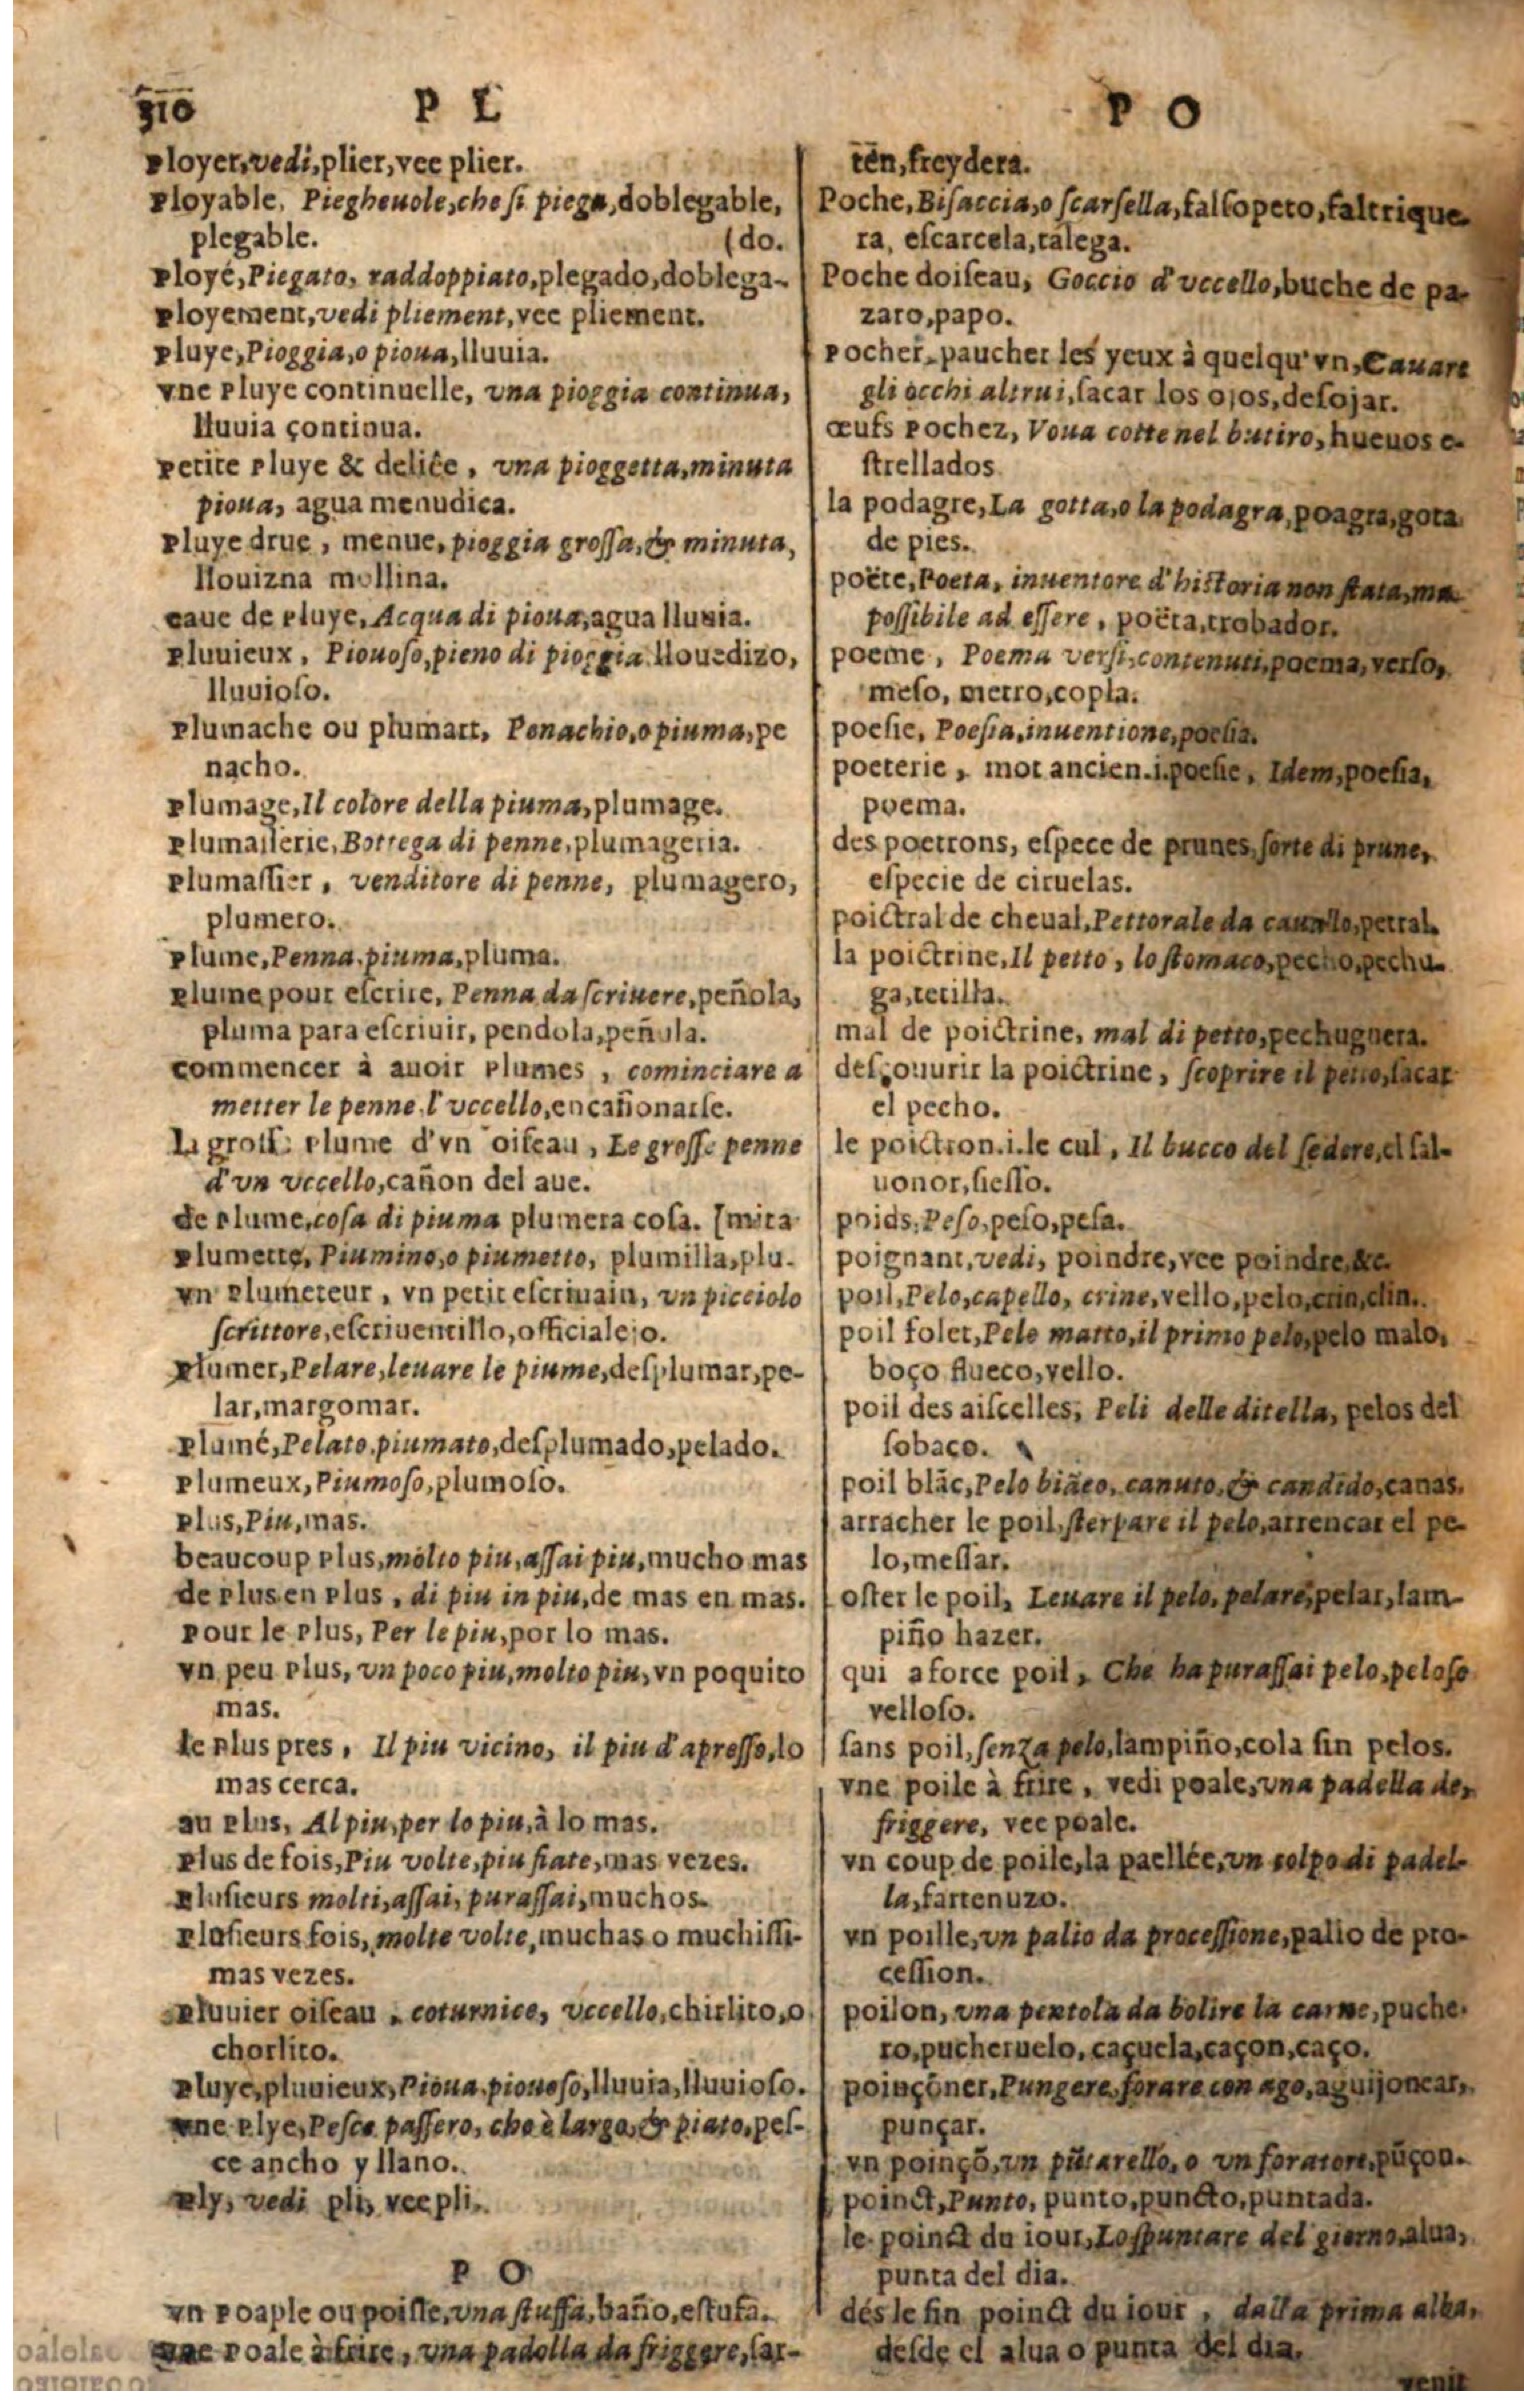 310 P L
Ployer, vedi, plier, vee plier.
Ployable, Piegheuole, che ſi piega, doblegable,
plegable. (do.
Ployé, Piegato, raddoppiato, plegado, doblega-
Ployement, vedi pliement, vee pliement.
Pluye, Pioggia, o pioua, lluuia.
vne Pluye continuelle, vna pioggia continua,
lluuia continua.
Petite Pluye & deliée, vna pioggetta, minuta
pioua, agua menudica.
Pluye drue, menue, pioggia groſſa, & minuta,
llouizna mollina.
eaue de Pluye, Acqua di pioua, agua lluuia.
Pluuieux, Piouoſo, pieno di pioggia llouedizo,
lluuioſo.
Plumache ou plumart, Penachio, o piuma, pe
nacho.
Plumage, Il colore della piuma, plumage.
Plumaſſerie, Bottega di penne, plumageria.
Plumaſſier, venditore di penne, plumagero,
plumero.
Plume, Penna, piuma, pluma.
Plume pour eſcrire, Penna da ſcriuere, peñola,
pluma para eſcriuir, pendola, peñula.
commencer à auoir Plumes, cominciare a
metter le penne l'vccello, encañonarſe.
La groſſe Plume d'vn oiſeau, Le groſſe penne
d'vn vccello, cañon del aue.
de Plume, coſa di piuma plumera coſa. [mita
Plumette, Piumino, o piumetto, plumilla, plu-
vn Plumeteur, vn petit eſcriuain, vn picciolo
ſcrittore, eſcriuentillo, officialejo.
Plumer, Pelare, leuare le piume, deſplumar, pe-
lar, margomar.
Plumé, Pelato, piumato, deſplumado, pelado.
Plumeux, Piumoſo, plumoſo.
Plus, Piu, mas.
beaucoup Plus, molto piu, aſſai piu, mucho mas
de Plus en Plus, di piu in piu, de mas en mas.
Pour le Plus, Per le piu, por lo mas.
vn peu Plus, vn poco piu, molto piu, vn poquito
mas.
le Plus pres, Il piu vicino, il piu d'apreſſo, lo
mas cerca.
au Plus, Al piu, per lo piu, à lo mas.
Plus de fois, Piu volte, piu fiate, mas vezes.
Pluſieurs molti, aſſai, puraſſai, muchos.
Pluſieurs fois, molte volte, muchas o muchiſſi-
mas vezes.
Pluuier oiſeau, coturnice, vccello, chirlito, o
chorlito.
Pluye, pluuieux, Pioua, piouoſo, lluuia, lluuioſo.
vne Plye, Peſce paſſero, che è largo, & piato, peſ-
ce ancho y llano.
Ply, vedi pli, vee pli.
P O
vn Poaple ou poiſle, vna ſtuffa, baño, eſtufa.
vne Poale à frire, vna padella da friggere, ſar-
P O
tēn, freydera.
Poche, Biſaccia, o ſcarſella, falſopeto, faltrique-
ra, eſcarcela, talega.
Poche doiſeau, Goccio d'vccello, buche de pa-
zaro, papo.
Pocher, paucher les yeux à quelqu'vn, Cauare
gli occhi altrui, ſacar los ojos, deſojar.
œufs Pochez, Voua cotte nel butiro, hueuos e-
ſtrellados
la podagre, La gotta, o la podagra, poagra, gota
de pies.
poëte, Poeta, inuentore d'hiſtoria non ſtata, ma
poſſibile ad eſſere, poëta, trobador.
poeme, Poema verſi, contenuti, poema, verſo,
meſo, metro, copla.
poeſie, Poeſia, inuentione, poeſia.
poeterie, mot ancien .i. poeſie, Idem, poeſia,
poema.
des poetrons, eſpece de prunes, ſorte di prune,
eſpecie de ciruelas.
poictral de cheual, Pettorale da cauallo, petral.
la poictrine, Il petto, lo ſtomaco, pecho, pechu-
ga, tetilla.
mal de poictrine, mal di petto, pechuguera.
deſcouurir la poictrine, ſcoprire il petto, ſacar
el pecho.
le poictron .i. le cul, Il bucco del ſedere, el ſal-
uonor, ſieſſo.
poids, Peſo, peſo, peſa.
poignant, vedi, poindre, vee poindre, &c.
poil, Pelo, capello, crine, vello, pelo, crin, clin.
poil folet, Pelo matto, il primo pelo, pelo malo,
boço flueco, vello.
poil des aiſcelles, Peli delle ditella, pelos del
ſobaco.
poil blāc, Pelo biāco, canuto, & candido, canas.
arracher le poil, ſterpare il pelo, arrencar el pe-
lo, meſſar.
oſter le poil, Leuare il pelo, pelare, pelar, lam-
piño hazer.
qui a force poil, Che ha puraſſai pelo, peloſo
velloſo.
ſans poil, ſenza pelo, lampiño, cola ſin pelos.
vne poile à frire, vedi poale, vna padella de,
friggere, vee poale.
vn coup de poile, la paellée, vn colpo di padel-
la, ſartenuzo.
vn poille, vn palio da proceſſione, palio de pro-
ceſſion.
poilon, vna pentola da bolire la carne, puche-
ro, pucheruelo, caçuela, caçon, caço.
poinçōner, Pungere, forare con ago, aguijonear,
punçar.
vn poinçō, vn pūtarello, o vn foratore, pūçon.
poinct, Punto, punto, puncto, puntada.
le poinct du iour, Lo ſpuntare del giorno, alua,
punta del dia.
dés le fin poinct du iour, dalla prima alba,
deſde el alua o punta del dia.
venit